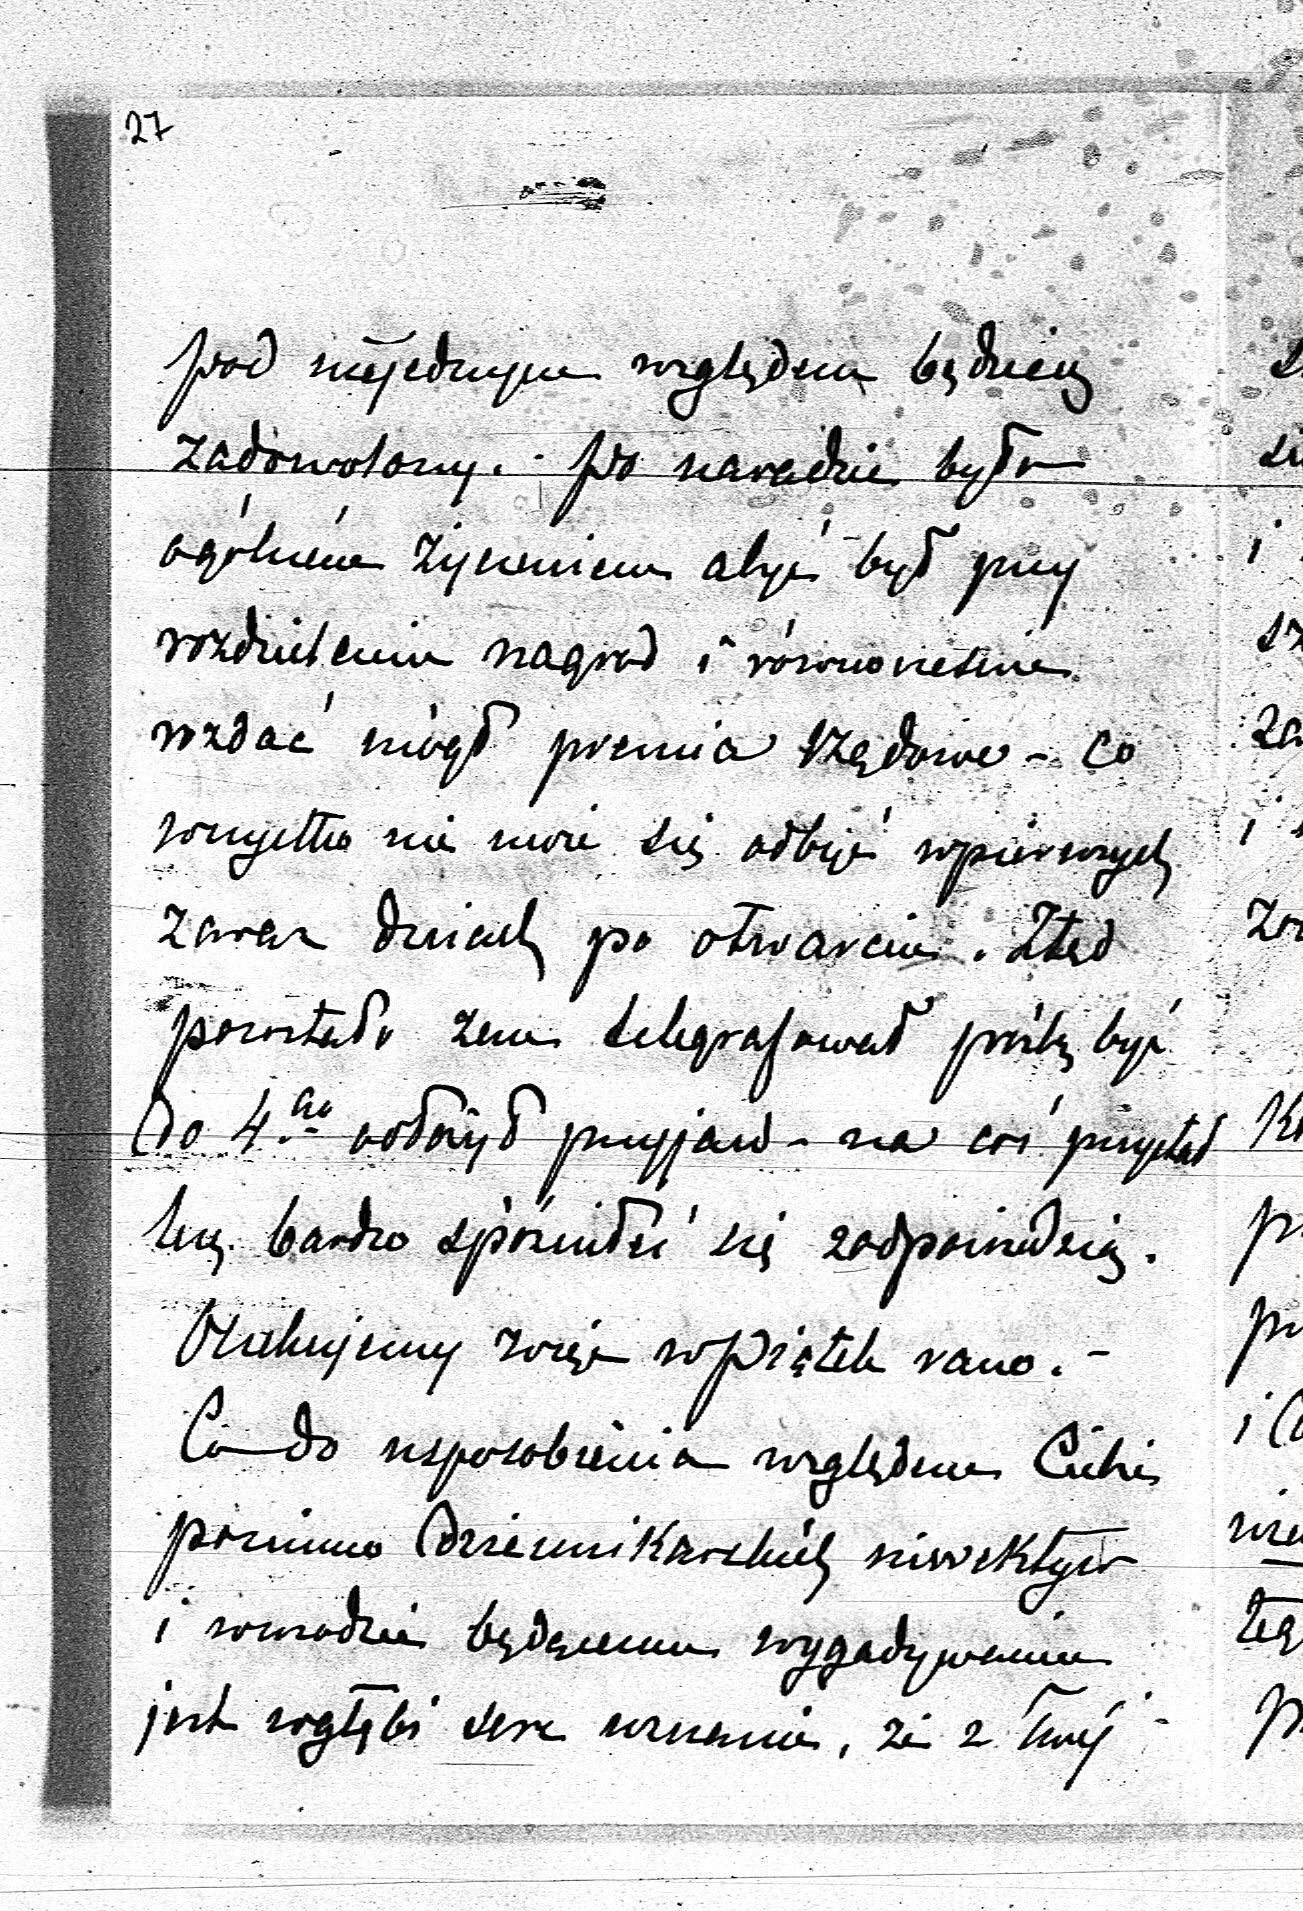 27
pod niejednym względem będziesz
zadowolony. - Po naradzie było
ogólném życzeniem abyś był przy
rozdzieleniu nagrod i równocześnie
rozdać mógł premia rządowe - co
wszystko nie może się odbyć w pierwszych
zaraz dniach po otwarciu. Ztąd
pozostało żem telegrafował prośbę byś
do 4go odłożył przyjazd - na coś przystał
lecz bardzo spóźniłeś się z odpowiedzią.
Oczekujemy więc w Piątek rano. -
Co do usposobienia względem Ciebie
pomimo Dziennikarskich inwektyw
i w modzie będącemu wygadywaniu
jest w głębi serc uznanie, że z twéj